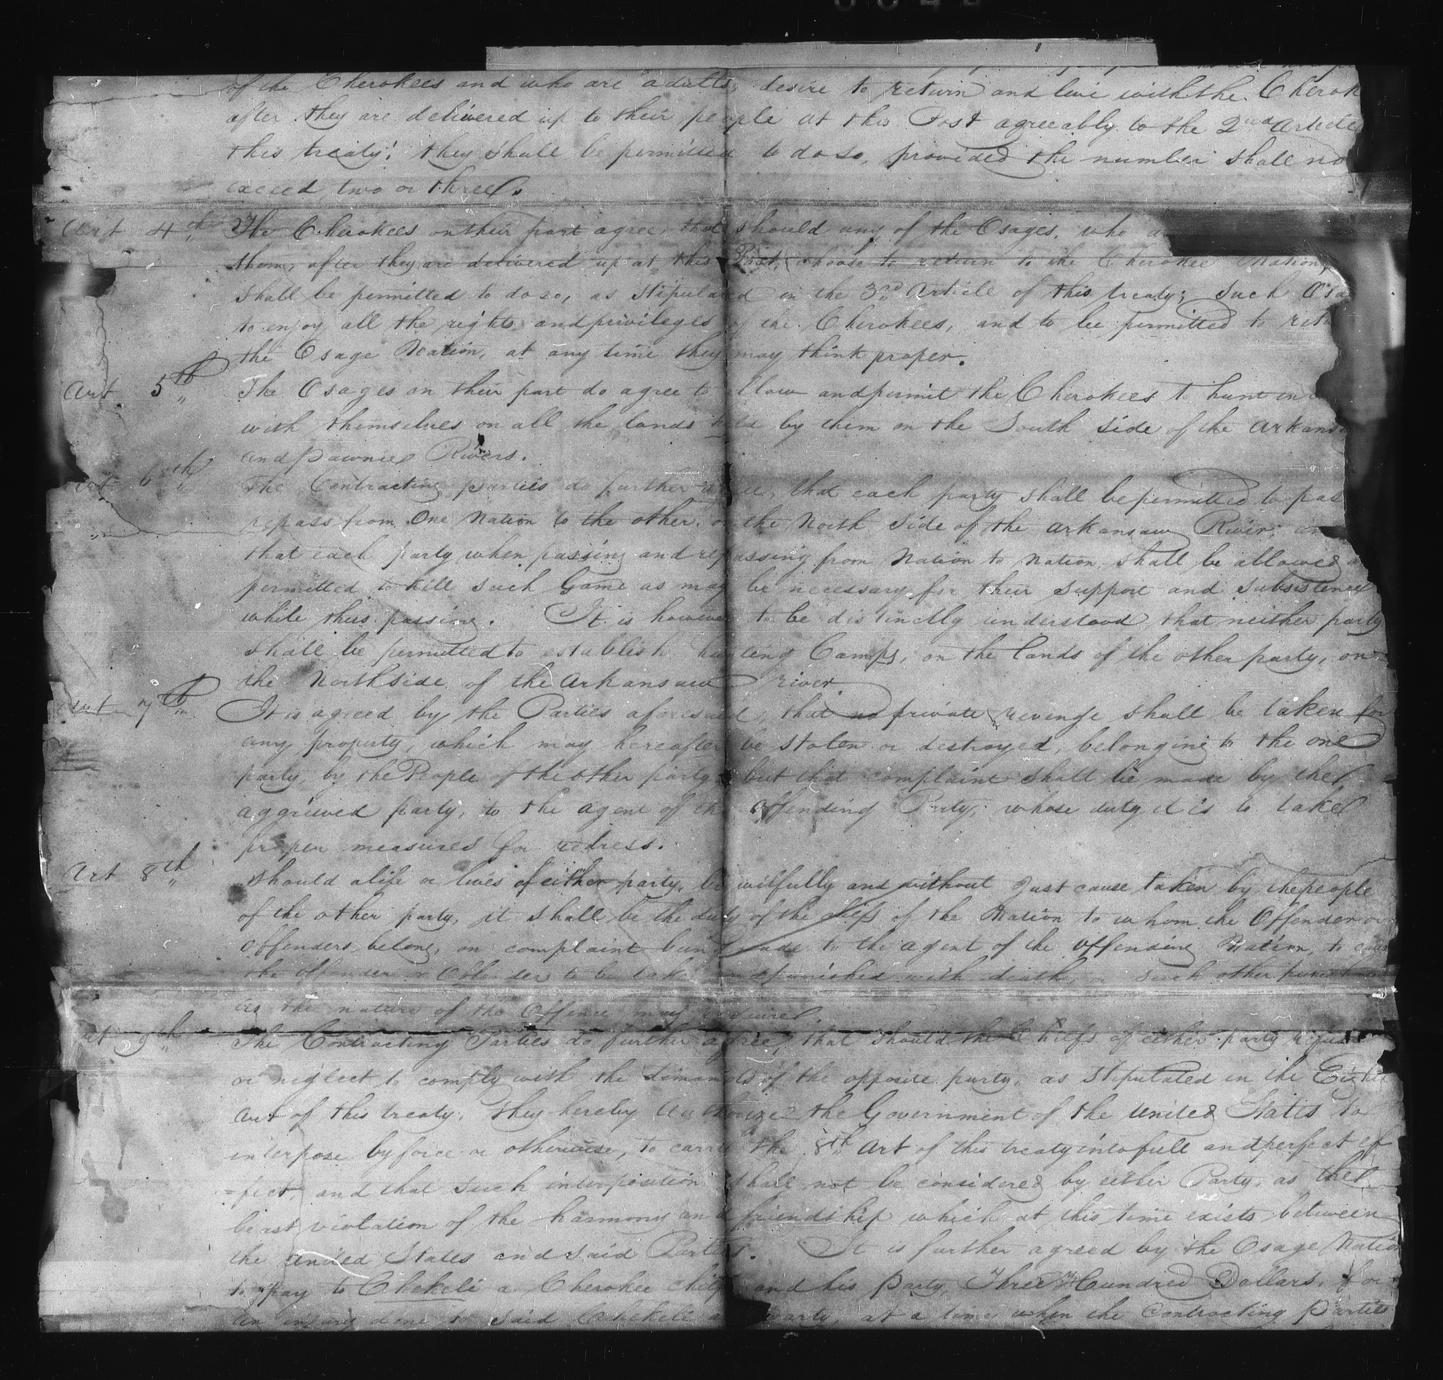 of the Cherokees and who are adults, desire to return and live with the Cherok
after they are delivered up to their people at this Post agreeably to the 2nd Article
this treaty; they shall be permitted to do so, provided the number shall no
exceed two or three.
Art 4th The Cherokees on their part agree, that should any of the Osages, who
them, after they are delivered up at this Post, choose to return to the Cherokee Nation,
shall be permitted to do so, as stipulated in the 3rd Article of this treaty; Such Osa
to enjoy all the rights and privileges of the Cherokees, and to be permitted to retu
the Osage Nation, at any time they may think proper.
Art. 5th The Osages on their part do agree to allow and permit the Cherokees to hunt in
with themselves on all the lands held by them on the South Side of the Arkansa
and Pawnee Rivers.
Art 6th The Contracting parties do further agree, that each party shall be permitted to pas
repass from One Nation to the other, on the North Side of the Arkansaw River; an
that each party when passing and repassing from Nation to Nation, shall be allowed
permitted to kill such Game as may be necessary for their Support and Subsistence
while thus passing. It is however to be distinctly understood that neither party
shall be permitted to establish hunting Camps, on the lands of the other party, on
the North side of the Arkansaw river.
Art 7th It is agreed by the Parties aforesaid, that no private revenge shall be taken for
any property, which may hereafter be stolen or destroyed, belonging to the one
party, by the People of the other party but that complaint shall be made by the
aggrieved party, to the agent of the offending Party, whose duty it is to take
proper measures for redress.
Art 8th Should a life or lives of either party, be wilfully and without just cause taken by the people
of the other party, it shall be the duty of the chiefs of the Nation to whom the Offender or
Offenders belong, on complaint being made to the agent of the Offending Nation, to cause
the offender or Offenders to be taken and punished with death, or such other punishment
as the nature of the Offence may require.
Art 9th The Contracting Parties do further agree, that should the Chiefs of either party refuse
or neglect to comply with the demands of the opposite party, as Stipulated in the Eighth
Art of this treaty. they hereby Authorize the Government of the United States to
interpose by force or otherwise, to carry the 8th Art of this treaty into full and perfect ef
=fect, and that such interposition shall not be considered by either Party, as the
least violation of the harmony and friendship which at this time exists between
the United States and said Parties. It is further agreed by the Osage Natio
to pay to Chekele a Cherokee chief and his party Three Hundred Dollars, for
an injury done to said Chekele and party, at a time when the Contracting Parties